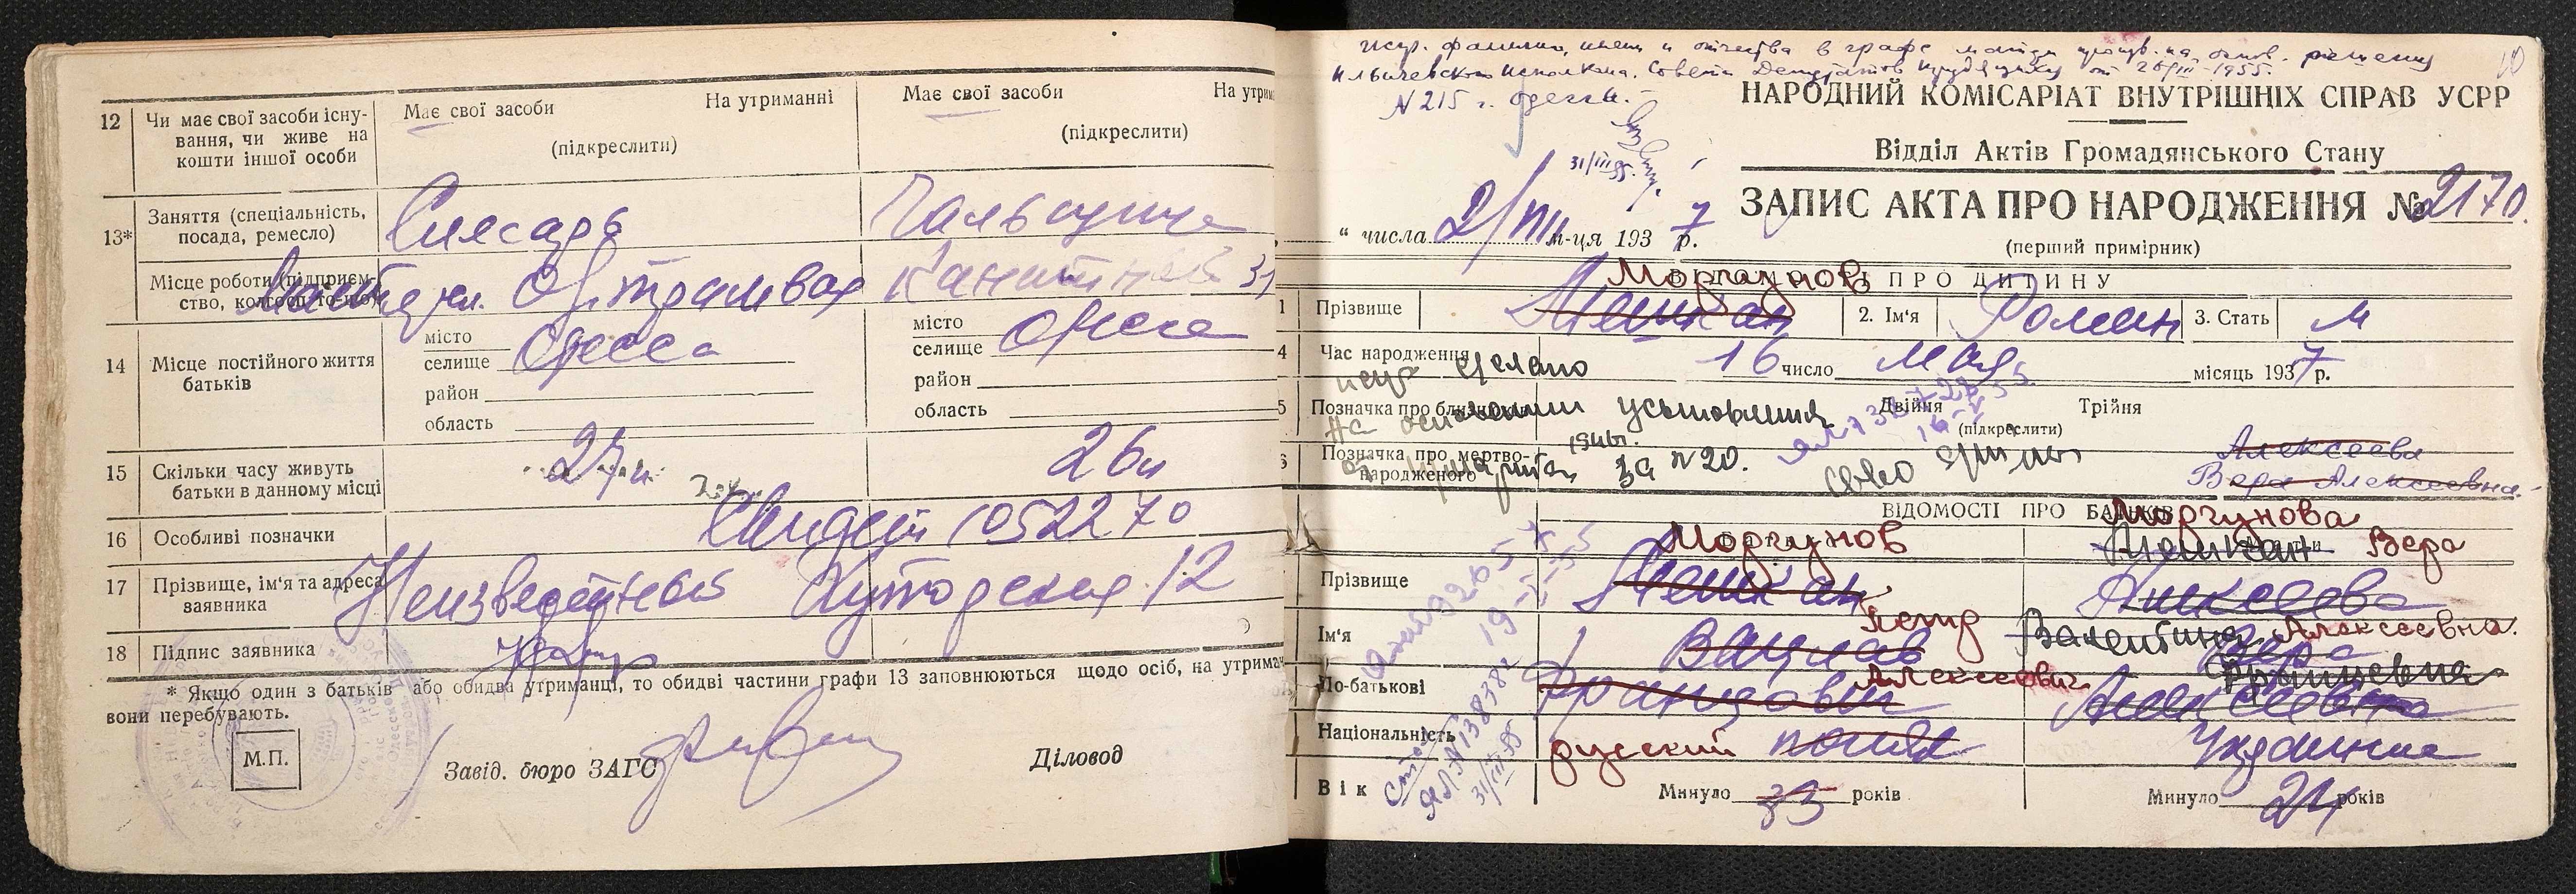 12 Чи має свої засоби існу-
вання, чи живе на
кошти іншої особи
Має свої засоби На утриманні
(підкреслити)
Має свої засоби На утрим
(підкреслити)
13* Заняття (спеціальність,
посада, ремесло)
Слесарь
Місце роботи (підприєм-
ство, колгосп то-що)
Од. трамвая
31
14 Місце постійного життя
батьків
місто
селище Одесса
район
область
місто
селище Одесса
район
область
15 Скільки часу живуть
батьки в данному місці
27 л.
26 л
16 Особливі позначки
1052270
17 Прізвище, ім'я та адреса
заявника
Неизвестный Хуторская 12
18 Підпис заявника
* Якщо один з батьків або обидва утриманці, то обидві частини графи 13 заповнюються щодо осіб, на утриман
вони перебувають.
М.П.
Завід. бюро ЗАГС
Діловод
испр. фамилии, имени и отчества в графе матери произв. на основ. решения
Ильичевского исполкома. Совета Депутатов трудящихся от 26/III-1955.
N 215 г. Одессы.-
10
31/III 55.
НАРОДНИЙ КОМІСАРІАТ ВНУТРІШНІХ СПРАВ УСРР
Відділ Актів Громадянського Стану
ЗАПИС АКТА ПРО НАРОДЖЕННЯ № 2170.
(перший примірник)
" числа 2/VIII м-ця 1937 р.
ВІДОМОСТІ ПРО ДИТИНУ
Моргунов
1 Прізвище Пешкан 2. Ім'я Роман 3. Стать м
4 Час народження 16 число мая місяць 1937 р.
испр сделано
5 Позначка про близнюків Двійня Трійня
(підкреслити)
на основании усыновления
6 Позначка про мертво-
народженого
1946г.
за N 20.
Алексеева
Вера Алексеевна.
ВІДОМОСТІ ПРО БАТЬКІВ
Моргунов
Моргунова
Пешкан Вера
Прізвище Пешкан Алексеева
Петр
Валентина Алексеевна.
Ім'я Вацлав Вера
Алексеевич
Францевна
По-батькові Францович Алексеевна
Національність русский поляк Украинка
Вік Минуло 33 років Минуло 24 років
19-V-55
31/III 55